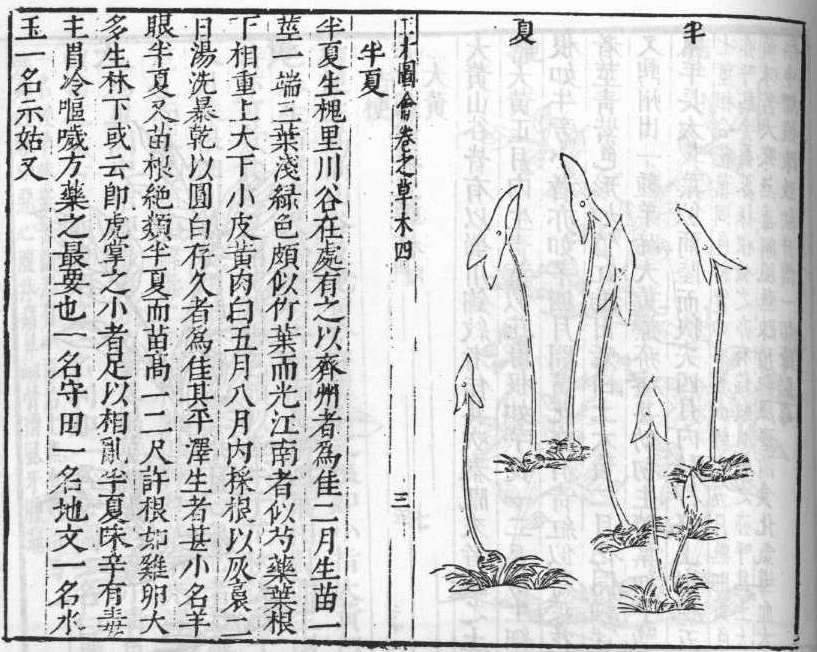 半夏
三才圖會卷之草木四 三
半夏
半夏生槐里川谷在處有之以齊州者爲佳二月生苗一
莖一端三葉淺緑色頗似竹葉而光江南者似芍藥葉根
下相重上大下小皮黄肉白五月八月内採根以灰裛二
日湯洗暴乾以圓白存久者爲佳其平澤生者甚小名羊
眼半夏又苗根絶類半夏而苗高一二尺許根如雞卵大
多生林下或云即虎掌之小者足以相亂半夏味辛有毒
主胃冷嘔噦方藥之最要也一名守田一名地文一名水
玉一名示姑又